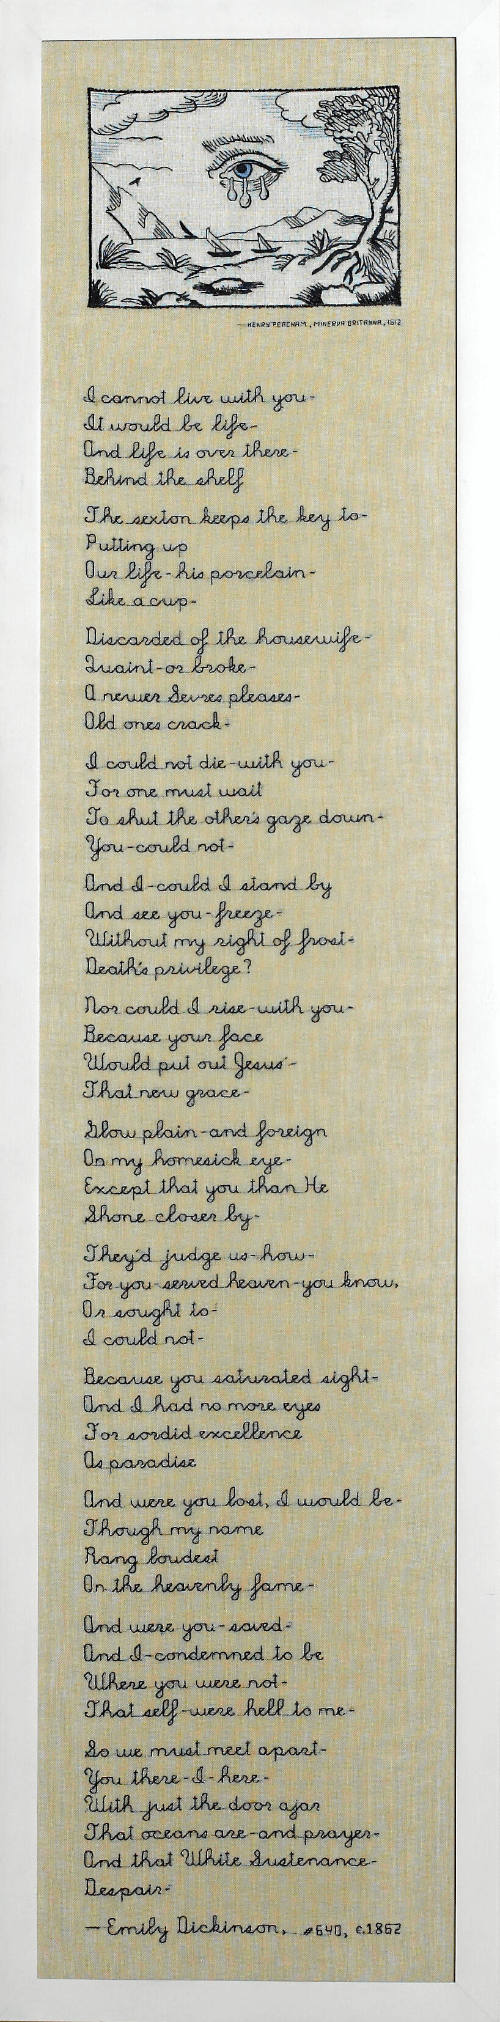 —HENRY PEACHAM, MINERVA BRITANNA, 1612
I cannot live with you-
It would be life-
And life is over there-
Behind the shelf
The sexton keeps the key to-
Putting up
Our life-his porcelain-
Like a cup-
Discarded of the housewife-
Quaint-or broke-
A newer Sevres pleases-
Old ones crack-
I could not die-with you-
For one must wait
To shut the other's gaze down-
You-could not-
And I-could I stand by
And see you-freeze-
Without my right of frost-
Death's privilege?
Nor could I rise-with you-
Because your face
Would put out Jesus'-
That new grace-
Glow plain-and foreign
On my homesick eye-
Except that you than He
Shone closer by-
They'd judge us-how-
For you-served heaven-you know,
Or sought to-
I could not-
Because you saturated sight-
And I had no more eyes
For sordid excellence
As paradise
And were you lost, I would be-
Though my name
Rang loudest
On the heavenly fame-
And were you-saved-
And I-condemned to be
Where you were not-
That self-were hell to me-
So we must meet apart-
You there-I-here-
With just the door ajar
That oceans are-and prayer-
And that White Sustenance-
Despair-
—Emily Dickinson, #640, c.1862